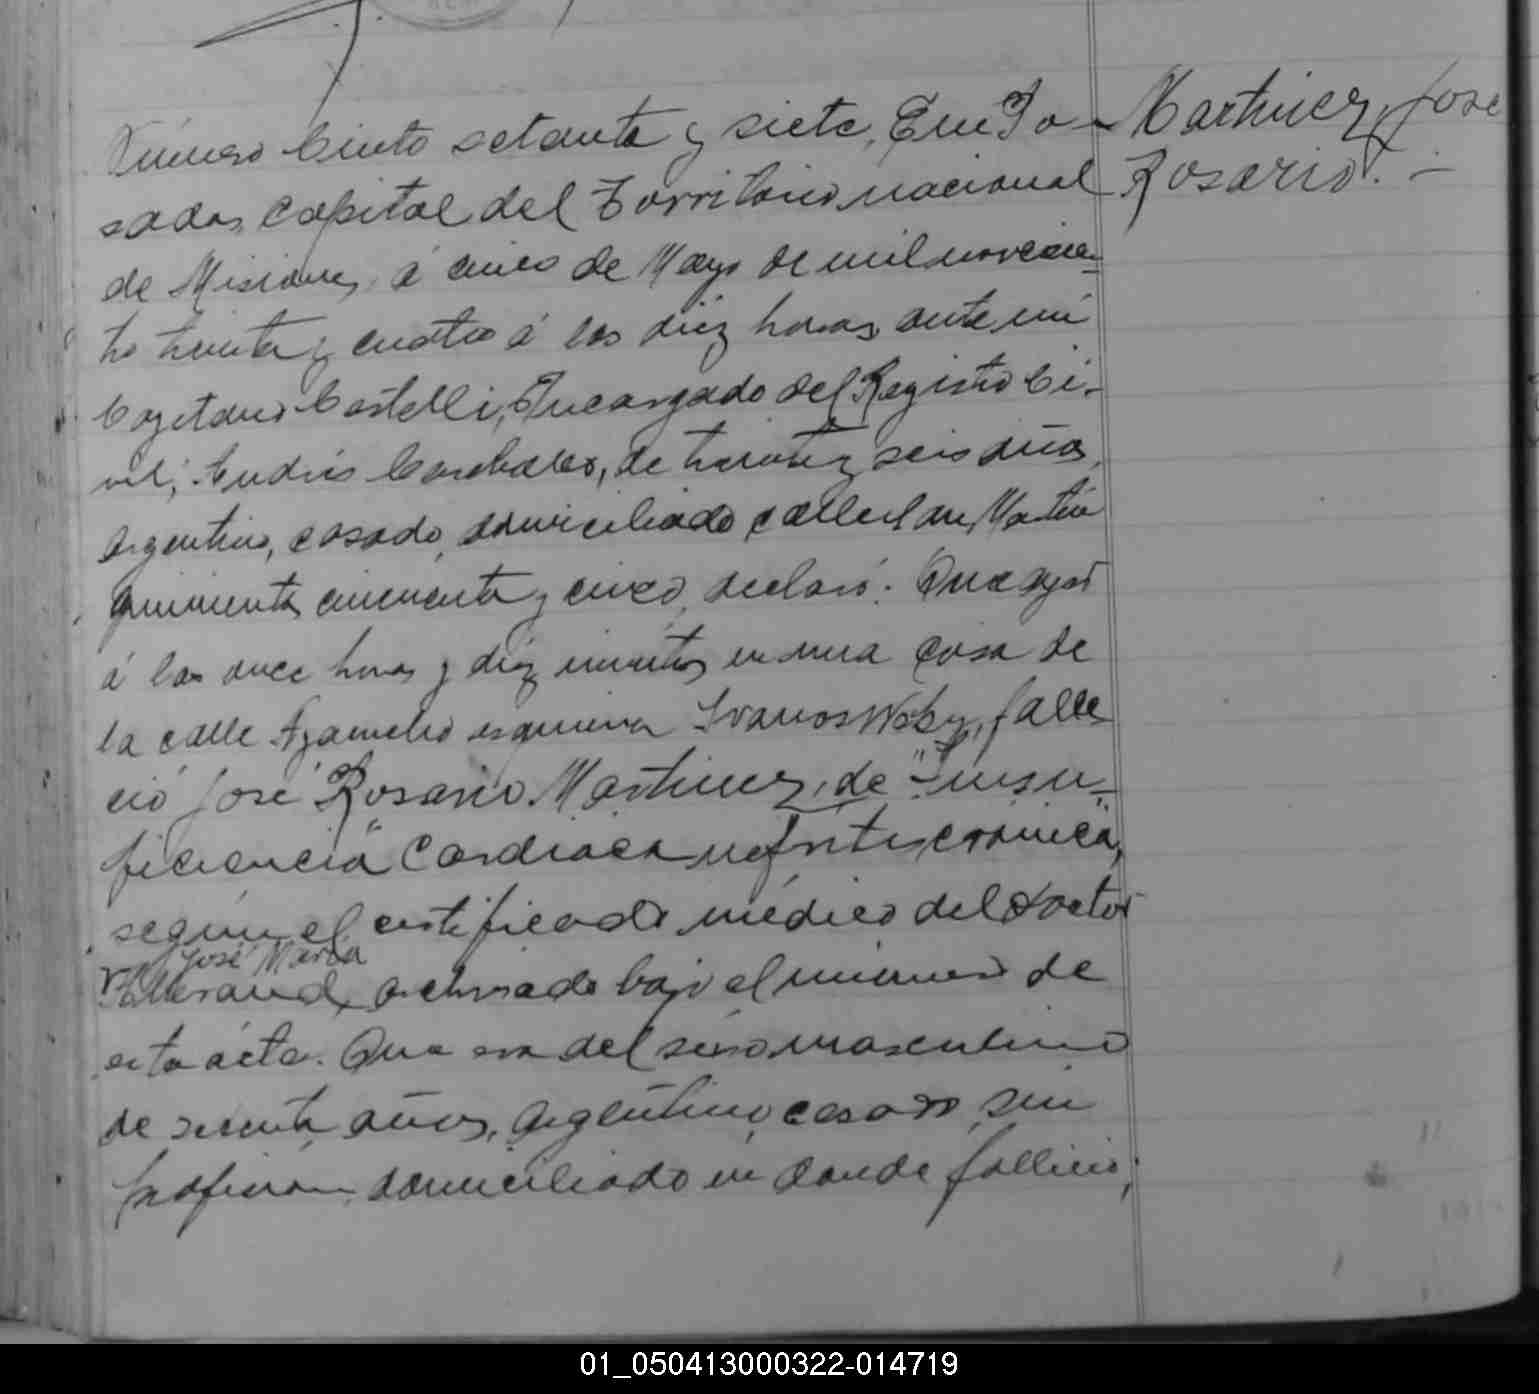 Número Ciento setenta y siete. En Po-
sadas, Capital del Territorio nacional
de Misiones, á cinco de Mayo de mil novecien-
to treinta y cuatro á las diez horas, ante mi
Cayetano Castelli, Encargado del Registro Ci-
vil; Andrés de treinta y seis años,
argentino, casado, domiciliado calle San Martin
quinientos cincuenta y cinco, declaró: Que ayer
á las once horas y diez minutos en una casa de
la calle Ayacucho esquina falle
ció José Rosario Martinez, de "Insu-
ficiencia" Cardiaca nefritis cronica,
según el certificado médico del doctor
José Maria
archivado bajo el número de
esta acta. Que era del sexo masculino
de sesenta años, argentino, casado, sin
profesion domiciliado en donde falleció;
Martinez, José
Rosario. -
01_050413000322-014719